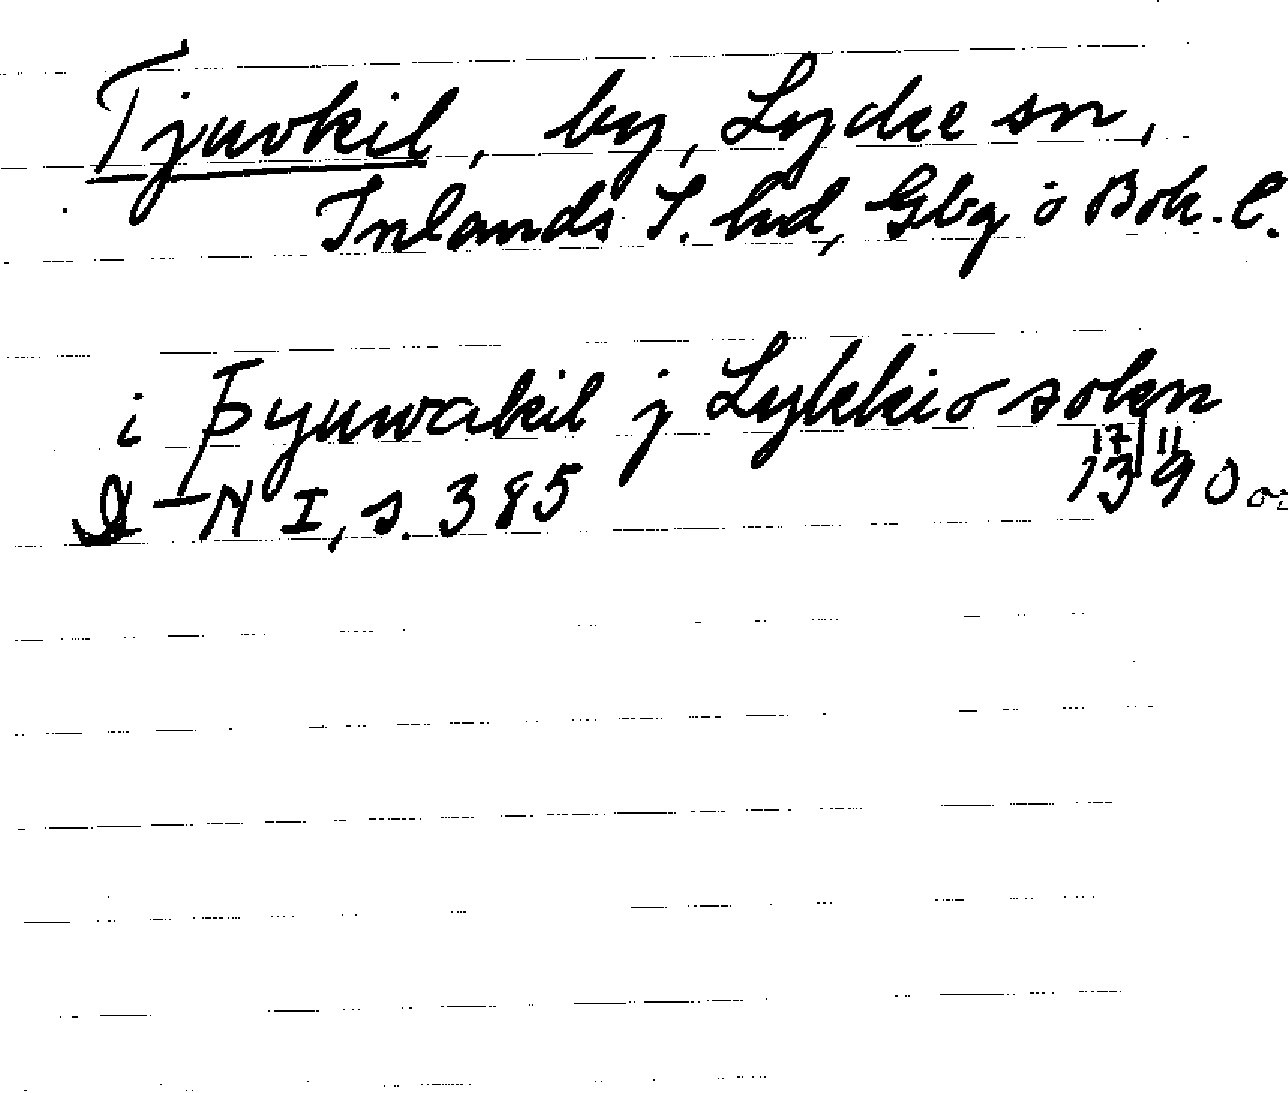 Tjuvkil, by, Lycke sn,
Inlands S. hd, Gbg o Bok. l.
i Þyuwakil j Lykkio sokn
17/11
D N I, s. 385 1390 or